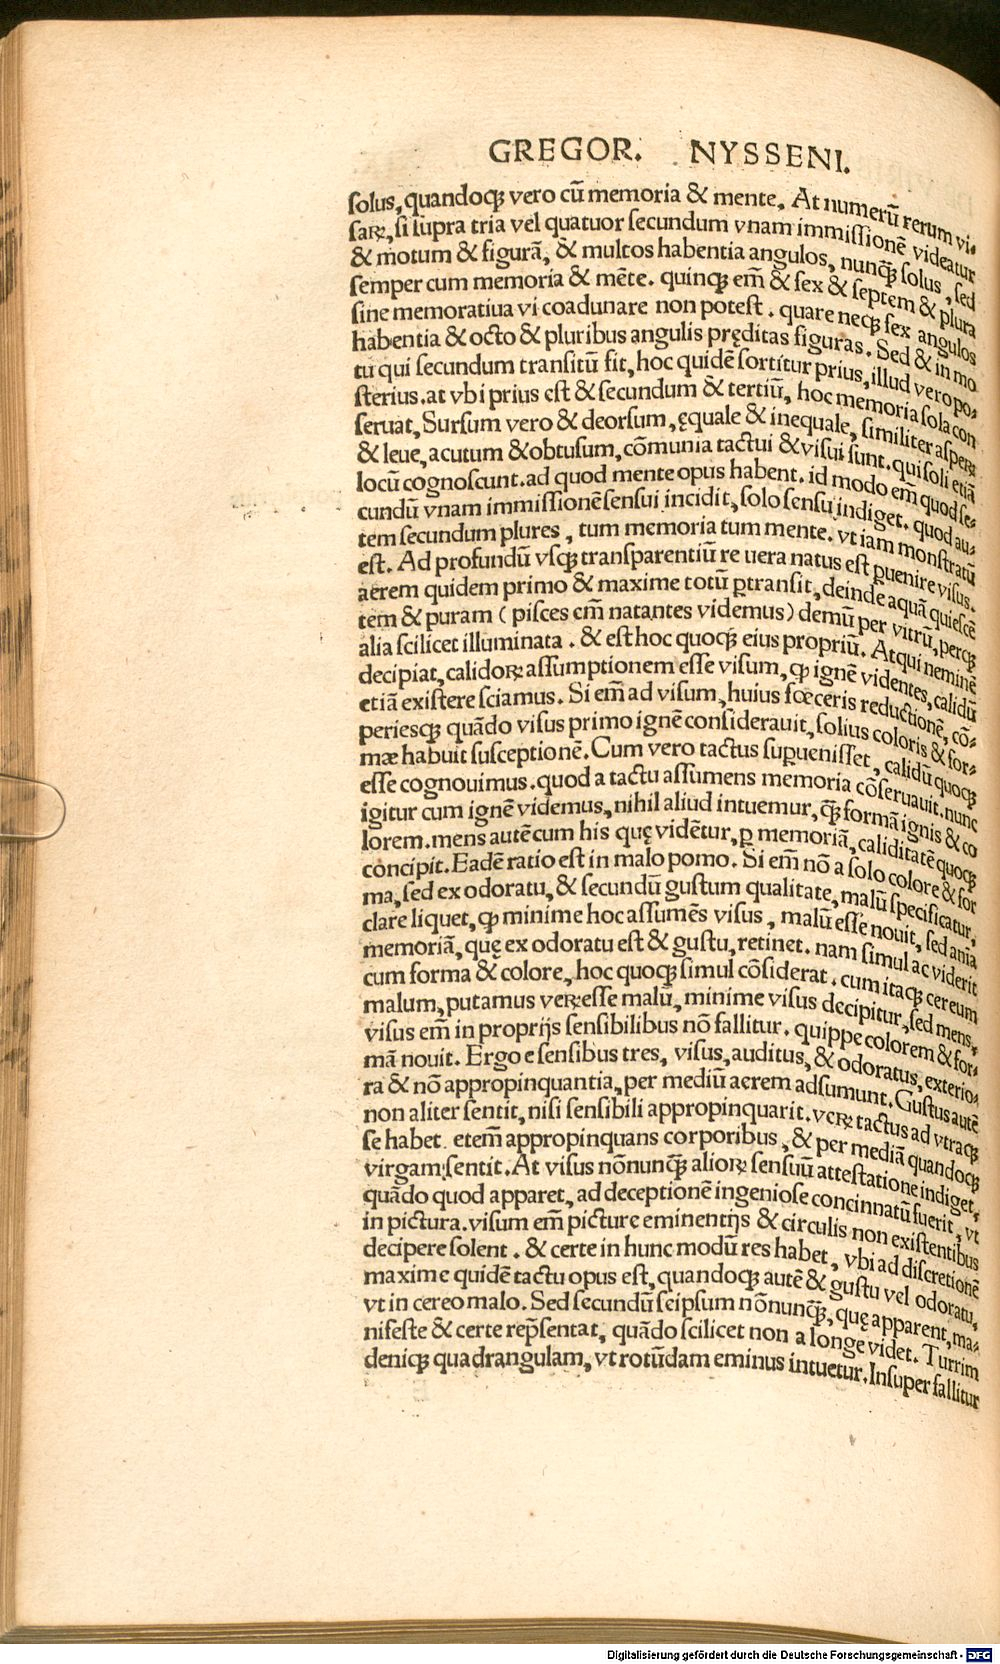 GREGOR. NYSSENI.
ſolus, quandoqꝫ vero cū memoria & mente. At numerū rerum vi⸗
ſaꝝ, ſi ſupra tria vel quatuor ſecundum vnam immiſſionē videatur
& motum & figurā, & multos habentia angulos, nunqꝫ̄ ſolus, ſed
ſemper cum memoria & mēte. quinqꝫ em̄ & ſex & ſeptem & plura
ſine memoratiua vi coadunare non poteſt. quare neqꝫ ſex angulos
habentia & octo & pluribus angulis pręditas figuras. Sed & in mo
tu qui ſecundum tranſitū fit, hoc quidē ſortitur prius, illud vero po⸗
ſterius. at vbi prius eſt & ſecundum & tertiū, hoc memoria ſola con
ſeruat, Surſum vero & deorſum, ęquale & inequale, ſimiliter aſpeꝝ
& leue, acutum & obtuſum, cōmunia tactui & viſui ſunt. qui ſoli etiā
locū cognoſcunt. ad quod mente opus habent. id modo em̄ quod ſe⸗
cundū vnam immiſſionē ſenſui incidit, ſolo ſenſu indiget. quod au⸗
tem ſecundum plures, tum memoria tum mente. vt iam monſtratū
eſt. Ad profundū vſqꝫ tranſparentiū re uera natus eſt ꝑuenire viſus.
aerem quidem primo & maxime totū ꝑtranſit, deinde aquā quieſcē
tem & puram (piſces em̄ natantes videmus) demū per vitrū, perqꝫ
alia ſcilicet illuminata. & eſt hoc quoqꝫ eius propriū. Atqui neminē
decipiat, calidoꝝ aſſumptionem eſſe viſum, ꝙ ignē videntes, calidū
etiā exiſtere ſciamus. Si em̄ ad viſum, huius fœceris reductionē, cō⸗
perieſqꝫ quādo viſus primo ignē conſiderauit, ſolius coloris & for⸗
mæ habuit ſuſceptionē. Cum vero tactus ſuꝑueniſſet, calidū quoqꝫ
eſſe cognouimus. quod a tactu aſſumens memoria cōſeruauit. nunc
igitur cum ignē videmus, nihil aliud intuemur, qꝫ̄ formā ignis & co
lorem. mens autē cum his quę vidētur, ꝑ memoriā, caliditatē quoqꝫ
concipit. Eadē ratio eſt in malo pomo. Si em̄ nō a ſolo colore & for
ma, ſed ex odoratu, & ſecundū guſtum qualitate, malū ſpecificatur,
clare liquet, ꝙ minime hoc aſſumēs viſus, malū eſſe nouit, ſed aīa
memoriā, quę ex odoratu eſt & guſtu, retinet. nam ſimul ac viderit
cum forma & colore, hoc quoqꝫ ſimul cōſiderat. cum itaqꝫ cereum
malum, putamus veꝝ eſſe malū, minime viſus decipitur, ſed mens,
viſus em̄ in proprijs ſenſibilibus nō fallitur. quippe colorem & for⸗
mā nouit. Ergo e ſenſibus tres, viſus, auditus, & odoratus, exterio⸗
ra & nō appropinquantia, per mediū aerem adſumunt. Guſtus autē
non aliter ſentit, niſi ſenſibili appropinquarit. veꝝ tactus ad vtraqꝫ
ſe habet. etem̄ appropinquans corporibus, & per mediā quandoqꝫ
virgam ſentit. At viſus nōnunqꝫ̄ alioꝝ ſenſuū atteſtatione indiget,
quādo quod apparet, ad deceptionē ingenioſe concinnatū fuerit, vt
in pictura. viſum em̄ picture eminentijs & circulis non exiſtentibus
decipere ſolent. & certe in hunc modū res habet, vbi ad diſcretionē
maxime quidē tactu opus eſt, quandoqꝫ autē & guſtu vel odoratu,
vt in cereo malo. Sed ſecundū ſeipſum nōnunqꝫ̄, quę apparent, ma⸗
nifeſte & certe rep̄ſentat, quādo ſcilicet non a longe videt. Turrim
deniqꝫ quadrangulam, vt rotūdam eminus intuetur. Inſuper fallitur
Digitalisierung gefördert durch die Deutsche Forschungsgemeinschaft - DFG